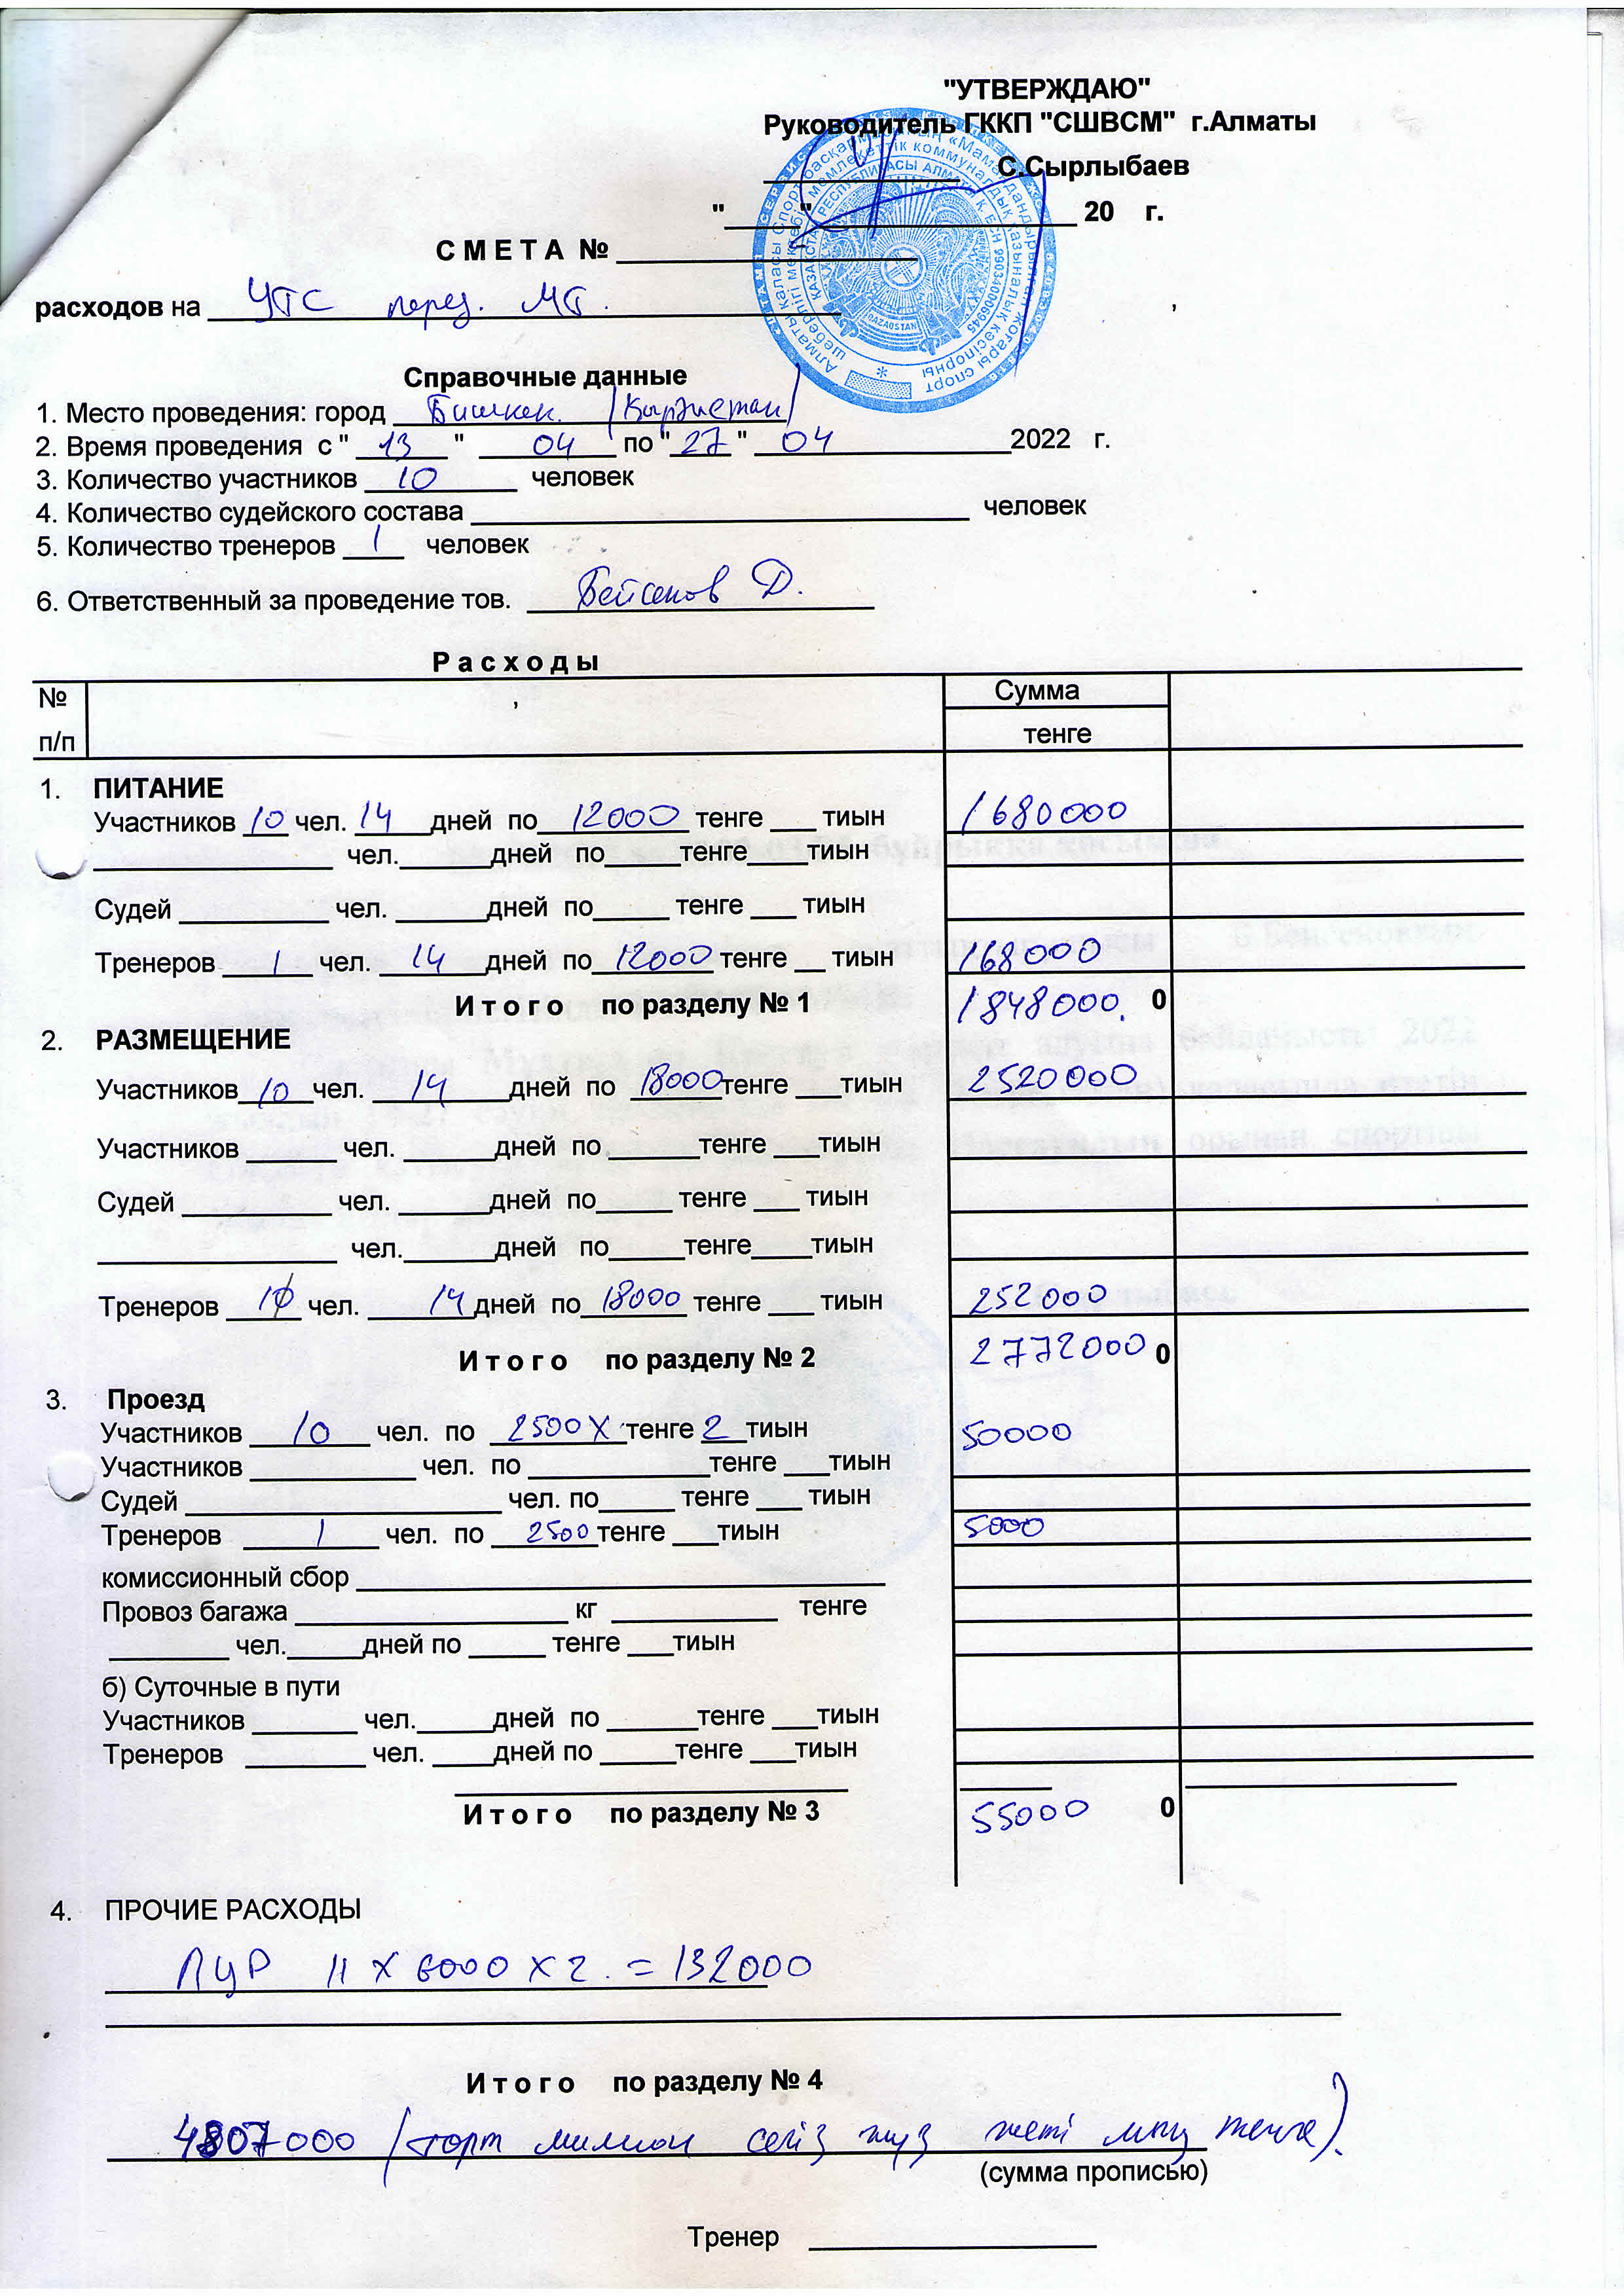 "УТВЕРЖДАЮ"
Руководитель ГККП "СШВСМ" г.Алматы
____________ С.Сырлыбаев
"_____"__________________ 20 г.
С М Е Т А № ____________________
расходов на УТС перед. МТ.
Справочные данные
1. Место проведения: город Бишкек. (Кыргизстан)
2. Время проведения с " 13 " 04 по " 27 " 04 2022 г.
3. Количество участников 10 человек
4. Количество судейского состава ____________________ человек
5. Количество тренеров 1 человек
6. Ответственный за проведение тов. Бейсенов Д.
Р а с х о д ы
№ п/п Сумма
тенге
1. ПИТАНИЕ
Участников 10 чел. 14 дней по 12000 тенге ___ тиын 1680000
________________ чел.______дней по_____тенге____тиын
Судей __________ чел. ______дней по_____ тенге ___ тиын
Тренеров 1 чел. 14 дней по 12000 тенге __ тиын 168000
И т о г о по разделу № 1 1848000. 0
2. РАЗМЕЩЕНИЕ
Участников 10 чел. 14 дней по 18000 тенге ___тиын 2520000
Участников ______ чел. ______дней по ______тенге ___тиын
Судей __________ чел. ______дней по_____ тенге ___ тиын
________________ чел.______дней по_____тенге____тиын
Тренеров 10 чел. 14 дней по 18000 тенге ___ тиын 252000
И т о г о по разделу № 2 2772000 0
3. Проезд
Участников 10 чел. по 2500 х тенге 2 тиын 50000
Участников ___________ чел. по ____________тенге ___тиын
Судей _____________________ чел. по_____ тенге ___ тиын
Тренеров 1 чел. по 2500 тенге ___тиын 5000
комиссионный сбор ___________________________________
Провоз багажа __________________ кг ___________ тенге
________ чел._____дней по _____ тенге ___тиын
б) Суточные в пути
Участников _______ чел._____дней по ______тенге ___тиын
Тренеров ________ чел. ____дней по _____тенге ___тиын
И т о г о по разделу № 3 55000 0
4. ПРОЧИЕ РАСХОДЫ
ПЦР 11 х 6000 х 2. = 132000
И т о г о по разделу № 4
4807000 (төрт миллион сегіз жүз жеті мың теңге).
(сумма прописью)
Тренер ___________________